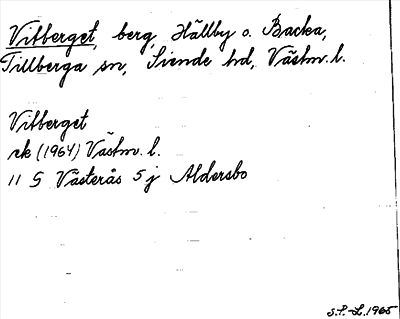 Vitberget, berg, Hällby o. Backa,
Tillberga sn, Siende hd, Västm. l.
Vitberget
rk (1964) Västm. l.
11 G Västerås 5 j Aldersbo
S.P.-L. 1965